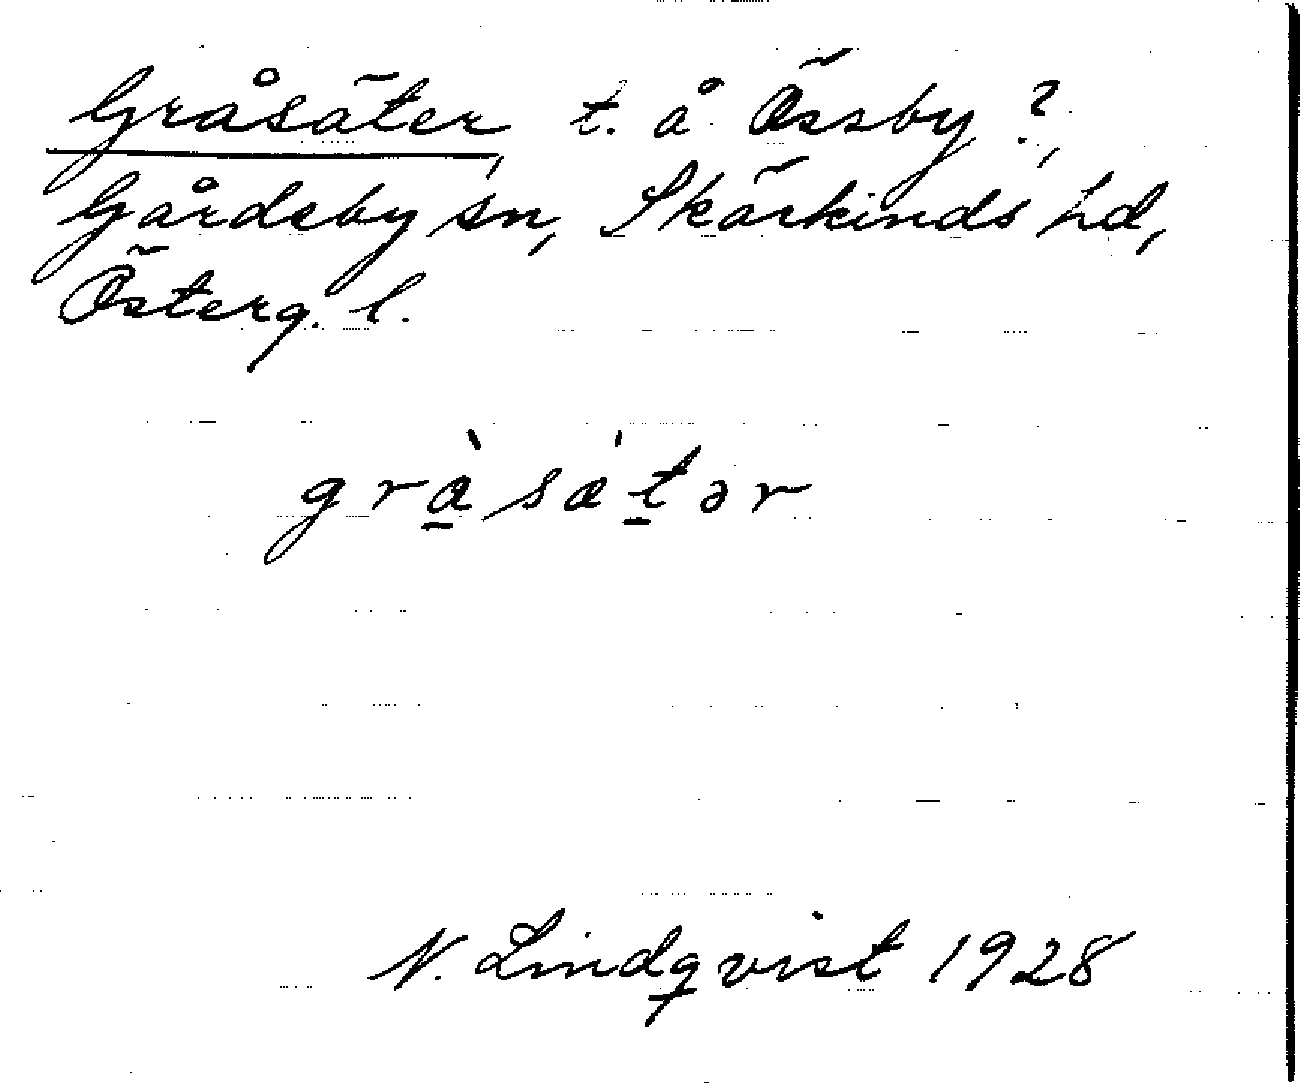 Gråsäter, t. å Össby?,
Gårdeby sn, Skärkinds hd,
Österg. l.
gràsátər
N. Lindqvist 1928